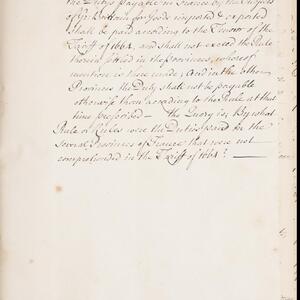 the Dutys payable in France by the Subjects
of Gr. Britain for Goods imported & exported
shall be paid according to the Tenour of the
Tariff of 1664, and shall not exceed the Rule
therein settled in the Provinces, whereof
mention is there made; And in the other
Provinces the Duty shall not be payable
otherwise than according to the Rule at that
time prescribed — the Query is, By what
Rule or Rules were the Duties paid in the
several Provinces of France that were not
comprehended in the Tariff of 1664? —